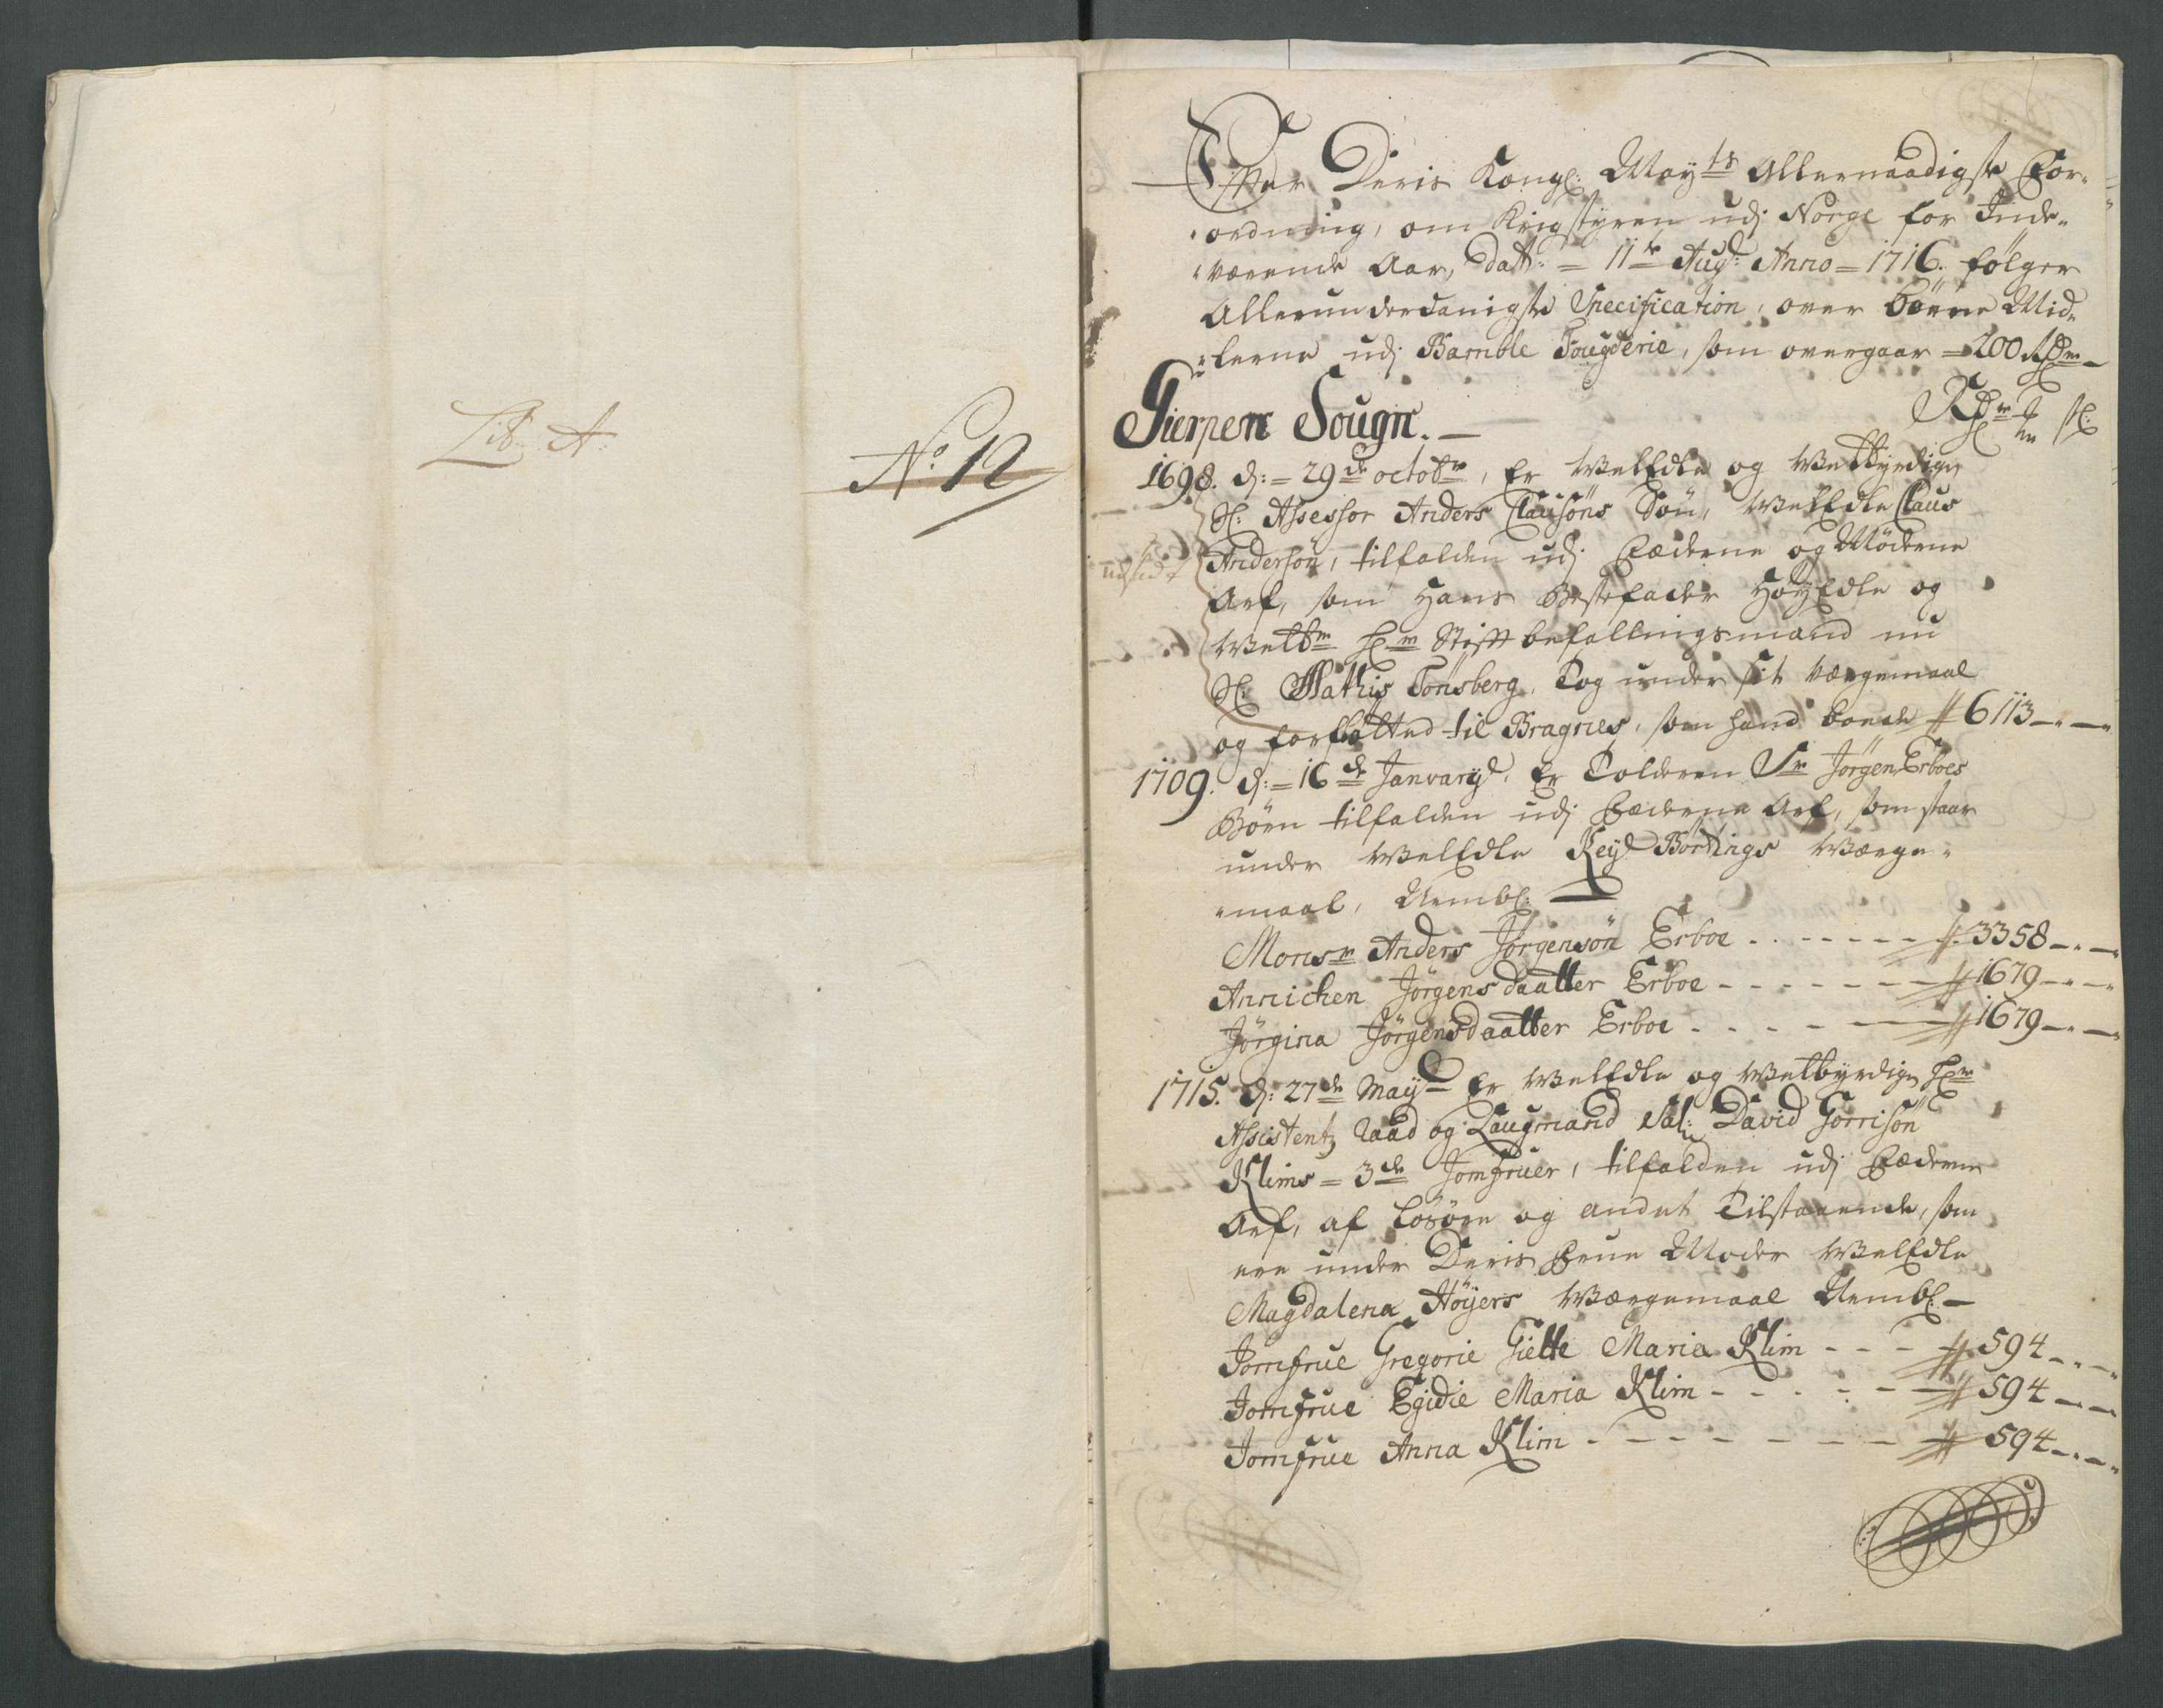 Lit: A:
No: 12
Efter Deris Kongl: Mayts Allernaadigste For-
ordning, om Krigstyren udj Norge for Inde-
værende Aar, dat: = 11te Aug: Anno = 1716. følger
Allerunderdanigste Specification, over Börne Mid-
lerne udj Bamble Fougderie, som overgaar = 200 Rdr
Gierpen Sougn.
Rdr sk:
1698. d: = 29de octobr, Er WelEdle og Welbyrdige
H: Assessor Anders Clausöns Sön, WelEdle Claus
Andersön, tilfalden udj Fæderne og Möderne
Arf, som Hans Bestefader HöyEdle og
Welbr Hr Stiftbefallingsmand nu
H: Mathis Tönsberg, tog under sit Værgemaal
og forflötted til Bragnes, som hand boede 6113
1709. d: = 16de January, Er Tolderen Sr Jörgen Erboes
Börn tilfalden udj Fæderne Arf, som staar
under WelEdle Börtings Wærge-
maal, Nembl:
Monsr Anders Jörgensön Erboe 3358
Annichen Jörgensdaatter Erboe 1679
Jörgina Jörgensdaatter Erboe 1679
1715. d: 27de May Er WelEdle og Welbyrdige Hr
Assistentz Raad og Laugmand Sal: David Gorrisön
Klims = 3de Jomfruer, tilfalden udj Fæderne
Arf, af Lösöre og andet Tilstaaende, som
ere under Deris Frue Moder WelEdle
Magdalena Höyers Wærgemaal Nembl:
Jomfrue Gregorie Giette Maria Klim 594
Jomfrue Egidie Maria Klim 594
Jomfrue Anna Klim 594